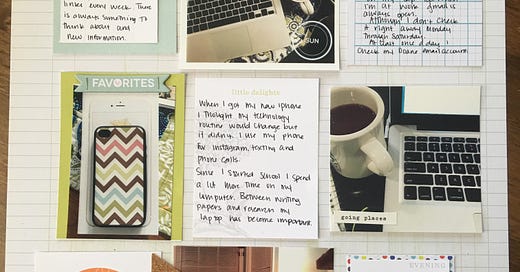 links every week. There
is always something to
think about and
new information.
SUN
i'm at work gmail is
always open.
Although I don't check
it right away Monday
Through Saturday.
At least once a day I
check my Doane email account.
FAVORITES
little delights
When I got my new iphone
I thought my technology
routine would change but
it didn't. I use my phone
for instagram, texting and
phone calls.
Since I started school I spend
a lot more time on my
computer. Between writing
papers and research my
laptop has become important.
going places
EVENING